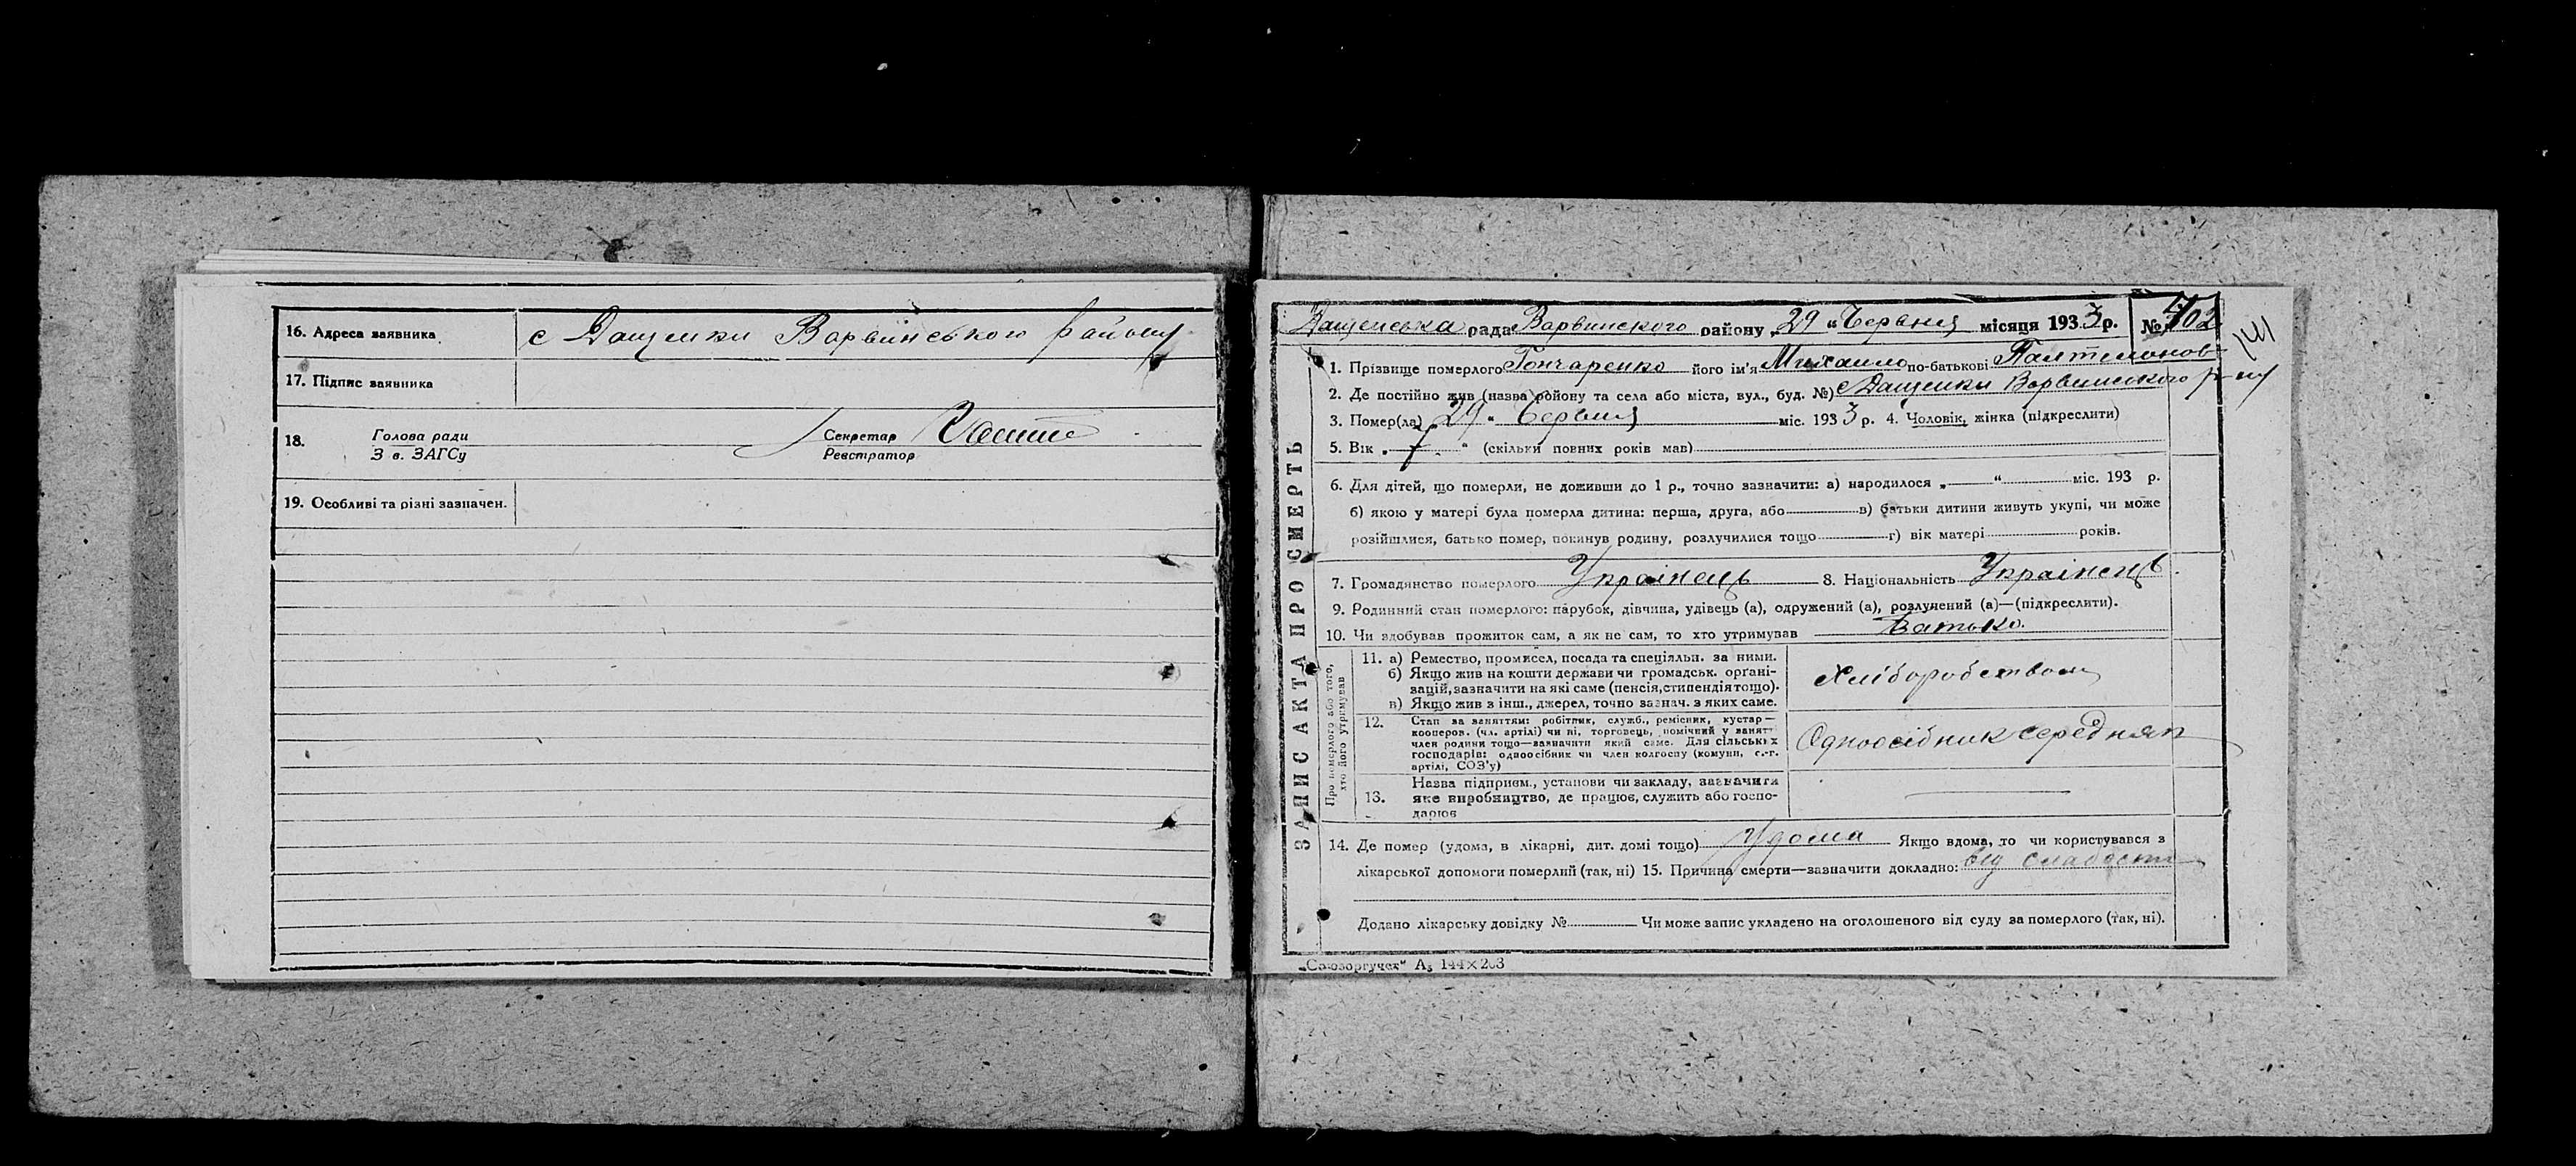 16. Адреса заявника с Дащенки Варвинського району
17. Підпис заявника
18. Голова ради Секретар
З в. ЗАГСу Реєстратор
19. Особливі та різні зазначен.
ЗАПИС АКТА ПРО СМЕРТЬ
Дащенська рада Варвинского району „29 “ Червня місяця 1933 р. № 402
141
1. Прізвище померлого Гончаренко його ім'я Михаило по-батькові Палтемонов
2. Де постійно жив (назва району та села або міста, вул., буд. №) с Дащенки Варвинского р-ну
3. Помер(ла) „29 “ Червня міс. 1933 р. 4. Чоловік, жінка (підкреслити)
5. Вік „ 7 “ (скільки повних років мав)
6. Для дітей, що померли, не доживши до 1 р., точно зазначити: а) народилося „ “ міс. 193 р.
б) якою у матері була померла дитина: перша, друга, або в) батьки дитини живуть укупі, чи може
розійшлися, батько помер, покинув родину, розлучилися тощо г) вік матері років.
7. Громадянство померлого Украінець 8. Національність Украінець
9. Родинний стан померлого: парубок, дівчина, удівець (а), одружений (а), розлучений (а)—(підкреслити).
10. Чи здобував прожиток сам, а як не сам, то хто утримував Батько.
Про померлого або того, хто його утримував
11. а) Ремество, промисел, посада та спеціяльн. за ними.
б) Якщо жив на кошти держави чи громадськ. органі-
зацій, зазначити на які саме (пенсія, стипендія тощо).
в) Якщо жив з інш., джерел, точно зазнач. з яких саме.
Хліборобством
12. Стан за заняттям: робітник, служб., ремісник, кустар—
кооперов. (чл. артілі) чи ні, торговець, помічний у занят-
член родини тощо—зазначити який саме. Для сільських
господарів: одноосібник чи член колгоспу (комуни, с.-г.
артілі, СОЗ'у)
Одноосібник середняк
13. Назва підприєм., установи чи закладу, зазначити
яке виробництво, де працює, служить або госпо-
дарює
14. Де помер (удома, в лікарні, дит. домі тощо) Удома Якщо вдома, то чи користувався з
лікарської допомоги померлий (так, ні) 15. Причина смерти—зазначити докладно: від слабости
Додано лікарську довідку № Чи може запис укладено на оголошеного від суду за померлого (так, ні).
„Союзоргучет“ А₅ 144×203